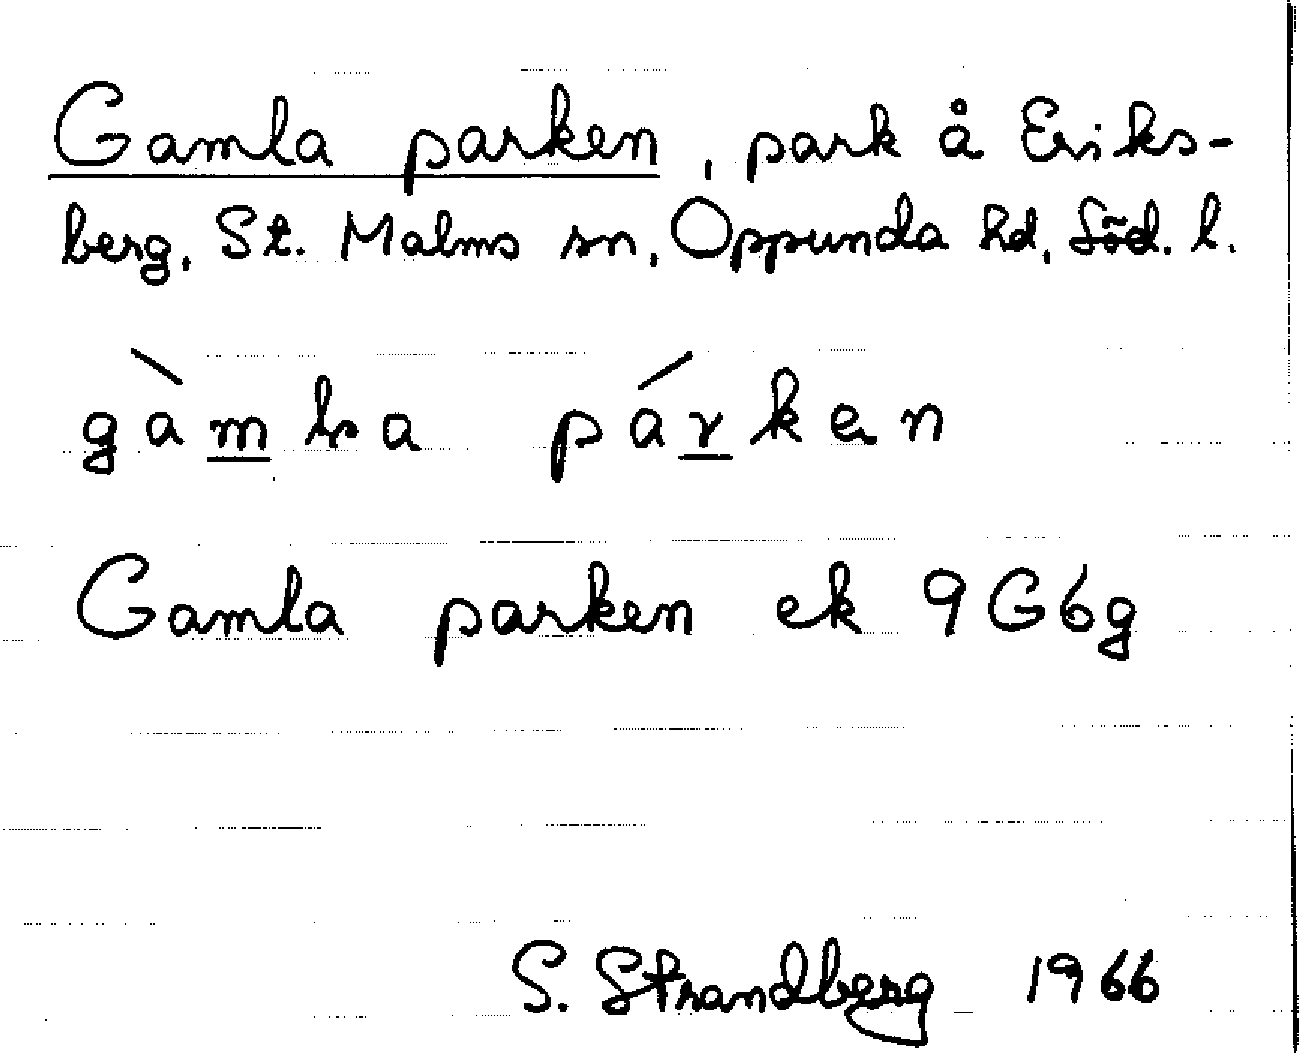 Gamla parken, park å Eriks-
berg, St. Malms sn, Oppunda hd, Söd. l.
gàmla párken
Gamla parken ek 9G6g
S. Strandberg 1966